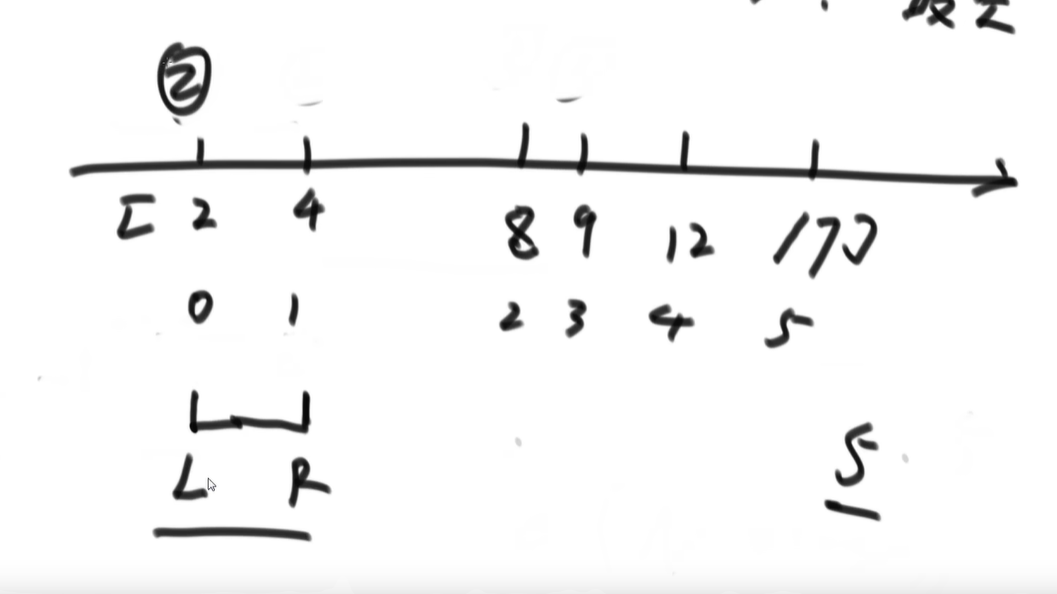 ②
[ 2 4 8 9 12 17]
0 1 2 3 4 5
L R
5